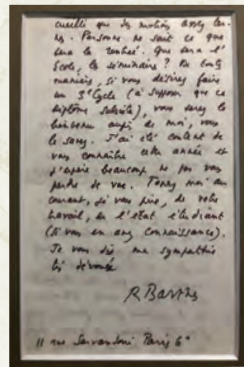 cueillir que des motions assez
. Personne ne sait ce que
sera la rentrée. Que sera l'
École, le séminaire ? De toute
manière, si vous désirez faire
un 3e Cycle (à supposer que ce
diplôme subsiste), vous serez le
bienvenu auprès de moi, vous
le savez. J'ai été content de
vous connaître cette année et
j'espère beaucoup ne pas vous
perdre de vue. Tenez moi au
courant, je vous prie, de votre
travail, en l'état étudiant
(si vous en avez connaissance).
Je vous dis ma sympathie
très dévouée
R Barthes
11 rue Servandoni Paris 6e